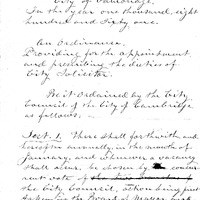 City of Cambridge.
In the year one thousand, eight
hundred and Sixty one.
An Ordinance,
Providing for the appointment
and prescribing the duties of
City Solicitor.
Be it Ordained by the City
Council of the City of Cambridge
as follows.
Sect. 1. There shall forthwith and
hereafter annually, in the month of
January, and whenever a vacancy
shall occur, be chosen by con-
current vote of
the City Council,
taken in the Board of Mayor and